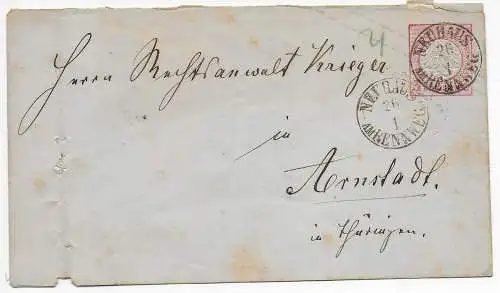 4
NEUHAUS
26
1
AM RENNWEG
Herrn Rechtsanwalt Krieger
NEUHAUS
26
1
AM RENNWEG
in
Arnstadt.
in Thüringen.